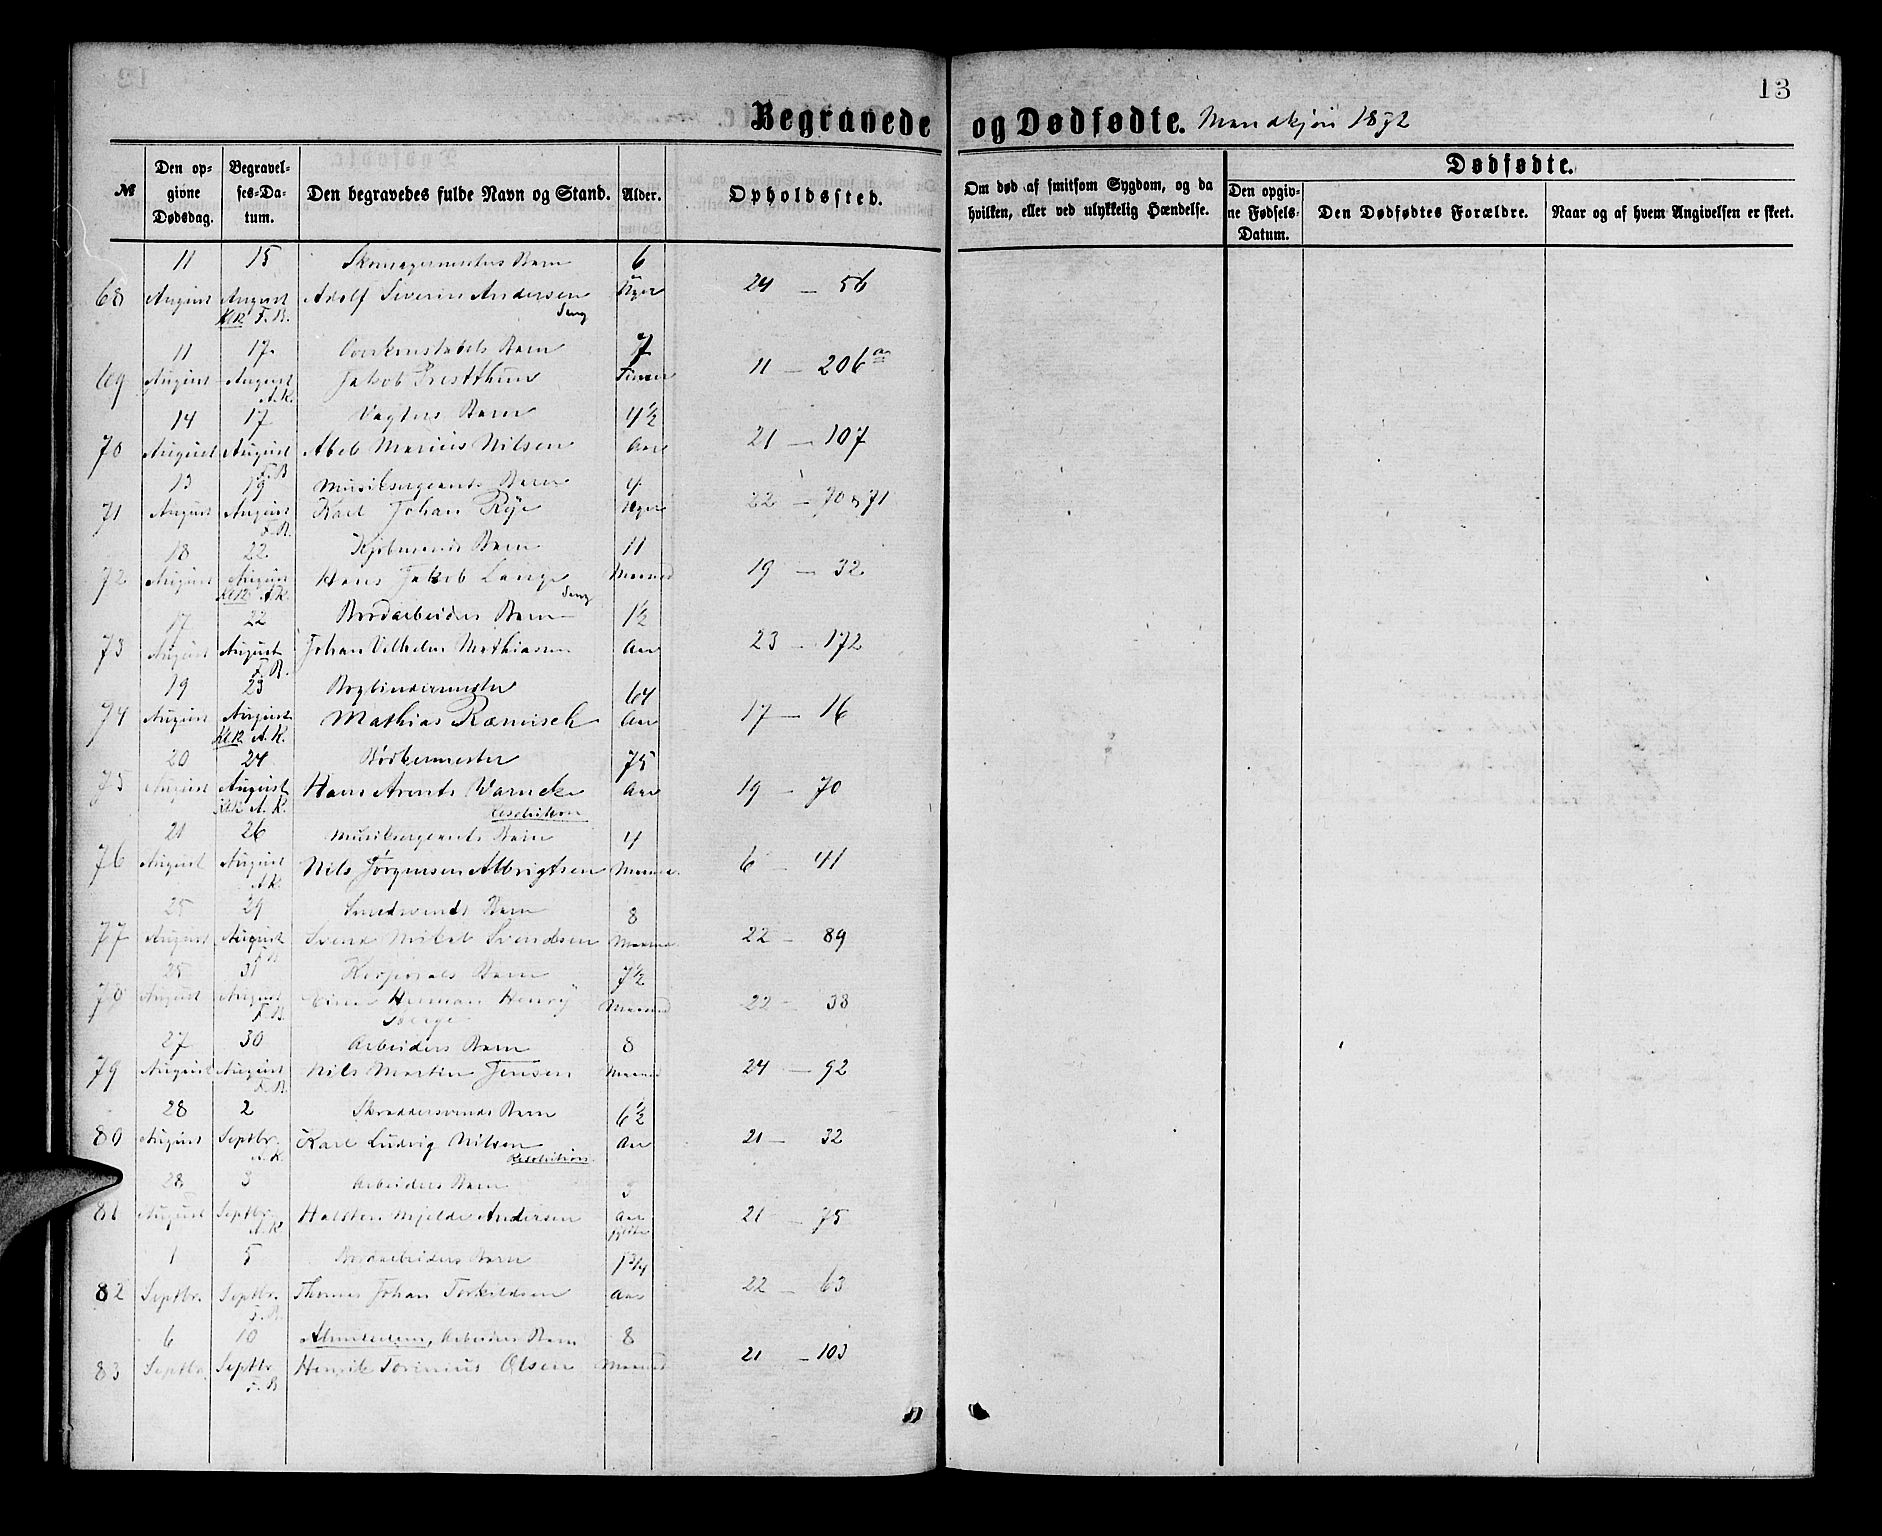 13
Begravede og Dødfødte. Mandkjøn 1872
№
Den opgivne Dødsdag.
Begravelses-Datum.
Den begravedes fulde Navn og Stand.
Alder.
Opholdssted.
Om død af smitsom Sygdom, og da hvilken, eller ved ulykkelig Hændelse.
Dødfødte.
Den opgivne Fødsels-Datum.
Den Dødfødtes Forældre.
Naar og af hvem Angivelsen er skeet.
11 15 Skomagermesters Barn 6
68 August August Adolf Severin Andersen Uger 24 — 56
F. B.
11 17 Overkonstabels Barn 7
69 August August Jakob Prestthun Timer 11 — 206a
A.K.
14 17 Vagters Barn 4½
70 August August Abel Marius Nilsen Aar 21 — 107
F.B
13 19 Musiksergeants Barn 4
71 August August Karl Johan Rye Uger 22 — 70 & 71
F.B.
18 22 Kjøbmands Barn 11
72 August August Hans Jakob Lange Maaned 19 — 32
A.K.
17 22 Bordarbeiders Barn 1½
73 August August Johan Vilhelm Mathiassen Aar 23 — 172
F.B.
19 23 Bogbindermester 64
74 August August Mathias Aar 17 — 16
A.K.
20 24 Bødkermester 75
75 August August Hans Arents Warncke Aar 19 — 70
A.K. Resolution
21 26 Musiksergeants Barn 4
76 August August Nils Jørgensen Albrigtsen Maaned. 6 — 41
A.K.
25 29 Smedsvends Barn 8
77 August August Svend Mikal Svendsen Maaned. 22 — 89
25 31 Korporals Barn 7½
78 August August Herman Henry Maaned 22 — 38
F.B.
27 30 Arbeiders Barn 8
79 August August Nils Martin Jensen Maaned 24 — 92
F.B
28 2 Skræddersvends Barn 6½
80 August Septbr. Karl Ludvig Nilsen Aar 21 — 32
A.K. Resolution
28 3 Arbeiders Barn 3
81 August Septbr. Halsten Mjelde Andersen Aar 21 — 75
A.K
1 5 Bordarbeiders Barn 1¾
82 Septbr. Septbr. Thomas Johan Torkildsen Aar 22 — 63
F.B.
6 10 Almuelem, Arbeiders Barn 8
83 Septbr. Septbr. Henrik Olsen Maaned 21 — 103
F.B